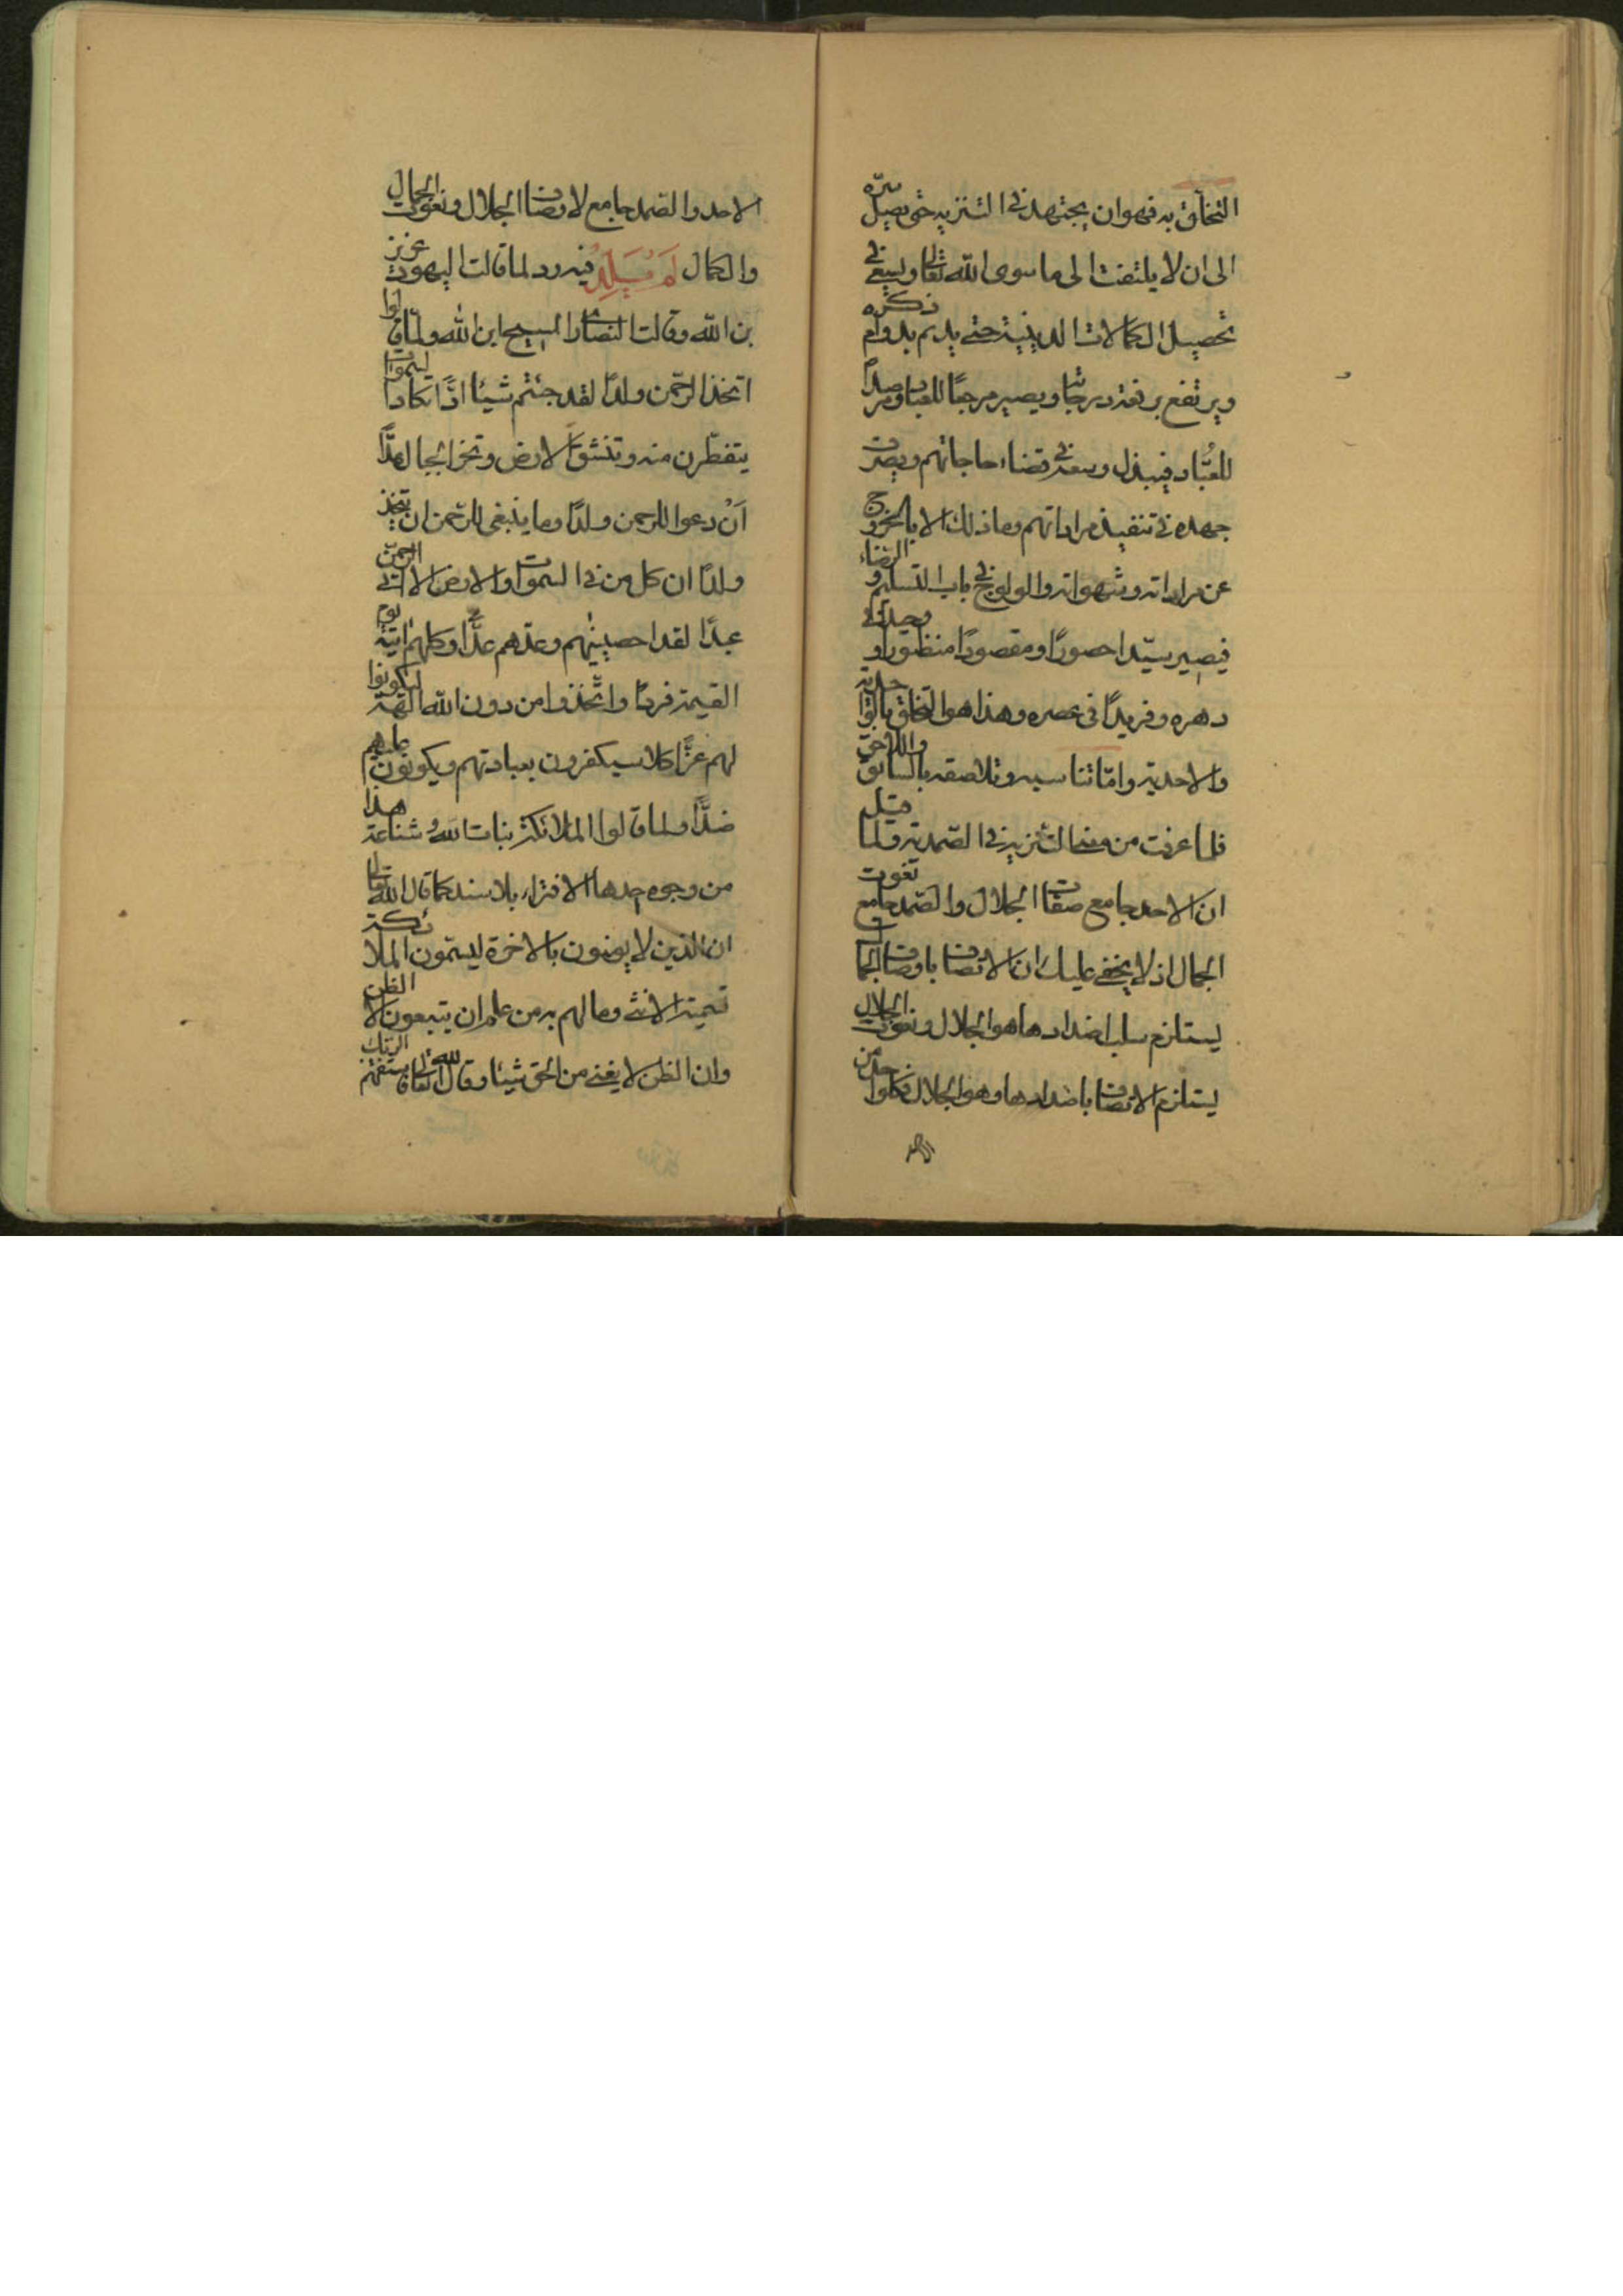 التخلّق به فهو ان يجتهد في التنزيه حتى يصل سرّه
الى ان لا يلتفت الى ما سوى الله تعالى ويسعى في
تحصيل الكمالات الدينية حتى يديم بدوام ذكره
ويرتفع برفعة درجاته ويصير مرجعًا للعباد ومرصدًا
للعُبّاد فيبذل وسعه في قضاء حاجاتهم ويصرف
جهده في تنفيذ مراداتهم وما ذلك الا بالخروج
عن مراداته وشهواته والولوج في باب التسليم والرضاء
فيصير سيّدا حصورًا ومقصودًا منظورا ووحيدًا في
دهره وفريدًا في عصره وهذا هو التخلق بالواحدية
والاحدية وامّا تناسبه وتلاصقه بالسابق واللاحق
فلما عرفت من معنى التنزيه في الصمدية وقلما قيل
ان الاحد جامع صفات الجلال والصمد جامع نعوت
الجمال اذ لا يخفى عليك ان الاتصاف باوصاف الجمال
يستلزم سلب اضدادها هو الجلال ونعوت الجلال
يستلزم الاتصاف باضدادها وهو الجلال فكل واحد من
الاحد والصمد جامع لاوصاف الجلال ونعوت الجمال
والكمال لَمْ يَلِدْ فيه رد لما قالت اليهود عزيز
بن الله وقالت النصارا المسيح ابن الله ولمّا قالوا
اتخذ الرحمن ولدًا لقد جئتم شيئا ادًّا تكاد السموات
يتفطّرن منه وتنشق الارض وتخر الجبال هدًّا
اَنْ دعوا للرحمن ولدًا وما ينبغى للرحمن ان يتخذ
ولدًا ان كل من في السموات والارض الا اتى الرحمن
عبدًا لقد احصيٰهم وعدهم عدًّا وكلهم اٰتيه يوم
القيمة فردًا واتّخذوا من دون الله الٓهة ليكونوا
لهم عزًّا كلا سيكفرون بعبادتهم ويكونون عليهم
ضدًّا ولما قالوا الملائكة بنات الله وشناعة هذا
من وجوه احدها الافتراء بلا سند كما قال الله تعالى
ان الذين لا يؤمنون بالاخرة ليسمّون الملائكة
تسمية الانثى وما لهم به من علم ان يتبعون الا الظن
وان الظن لا يغنى من الحق شيئا وقال الله تعالى فاستفتهم الربك